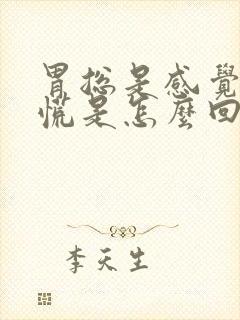 胃总是感覺
慌是怎麼回
李天生